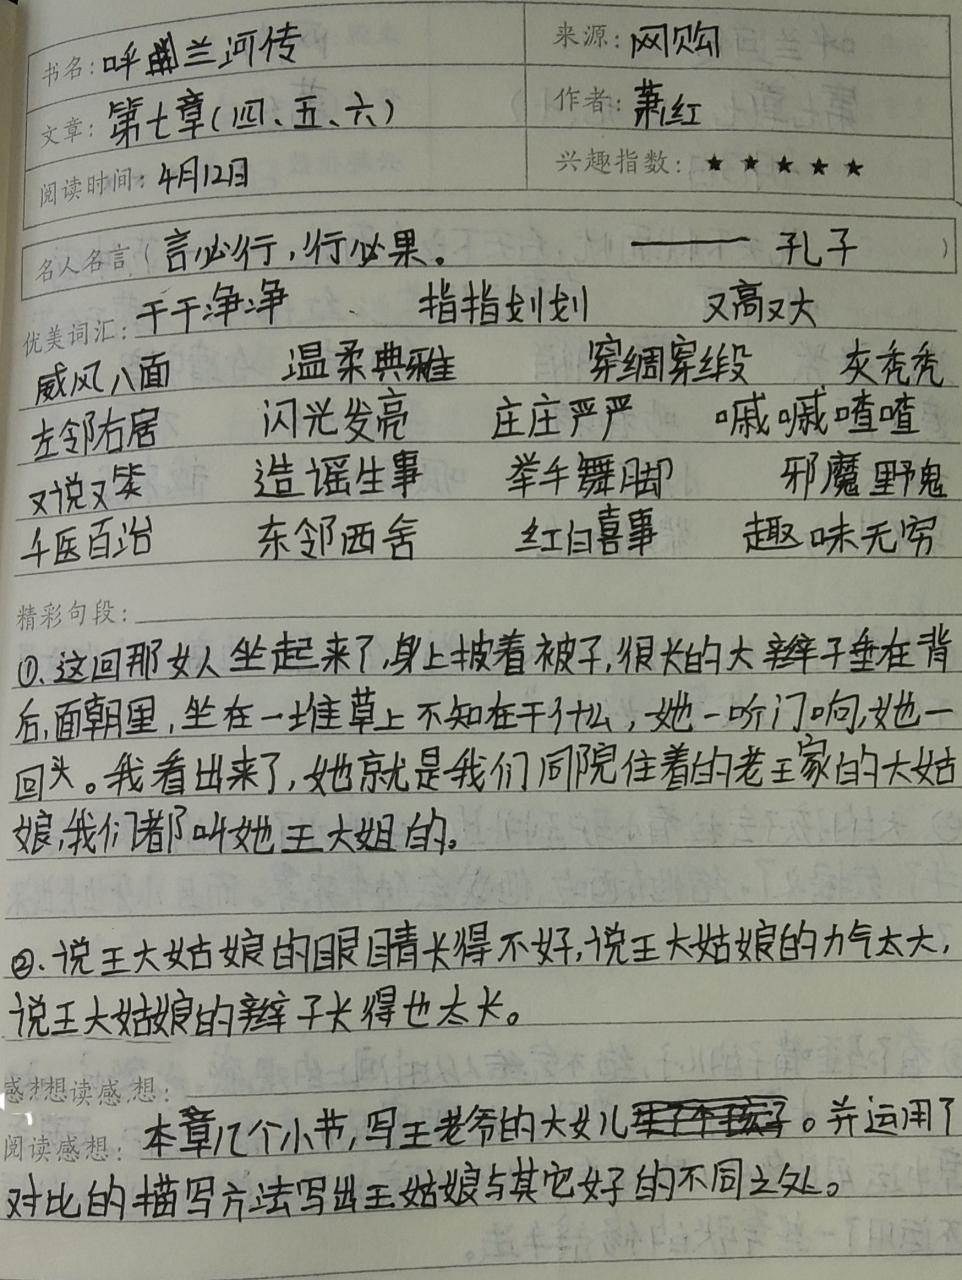 书名：呼兰河传 来源：网购
文章：第七章（四、五、六） 作者：萧红
阅读时间：4月12日 兴趣指数：★★★★★
名人名言（言必行，行必果。——孔子）
优美词汇：干干净净 指指划划 又高又大
威风八面 温柔典雅 穿绸穿缎 灰秃秃
左邻右居 闪光发亮 庄庄严严 嘁嘁喳喳
又说又笑 造谣生事 举手舞脚 邪魔野鬼
千医百治 东邻西舍 红白喜事 趣味无穷
精彩句段：
①.这回那女人坐起来了，身上披着被子，很长的大辫子垂在背
后，面朝里，坐在一堆草上不知在干什么，她一听门响，她一
回头。我看出来了，她就是我们同院住着的老王家的大姑
娘，我们都叫她王大姐的。
②.说王大姑娘的眼睛长得不好，说王大姑娘的力气太大，
说王大姑娘的辫子长得也太长。
感想想读感想：
阅读感想：本章几个小节，写王老爷的大女儿。并运用了
对比的描写方法写出王姑娘与其它好的不同之处。